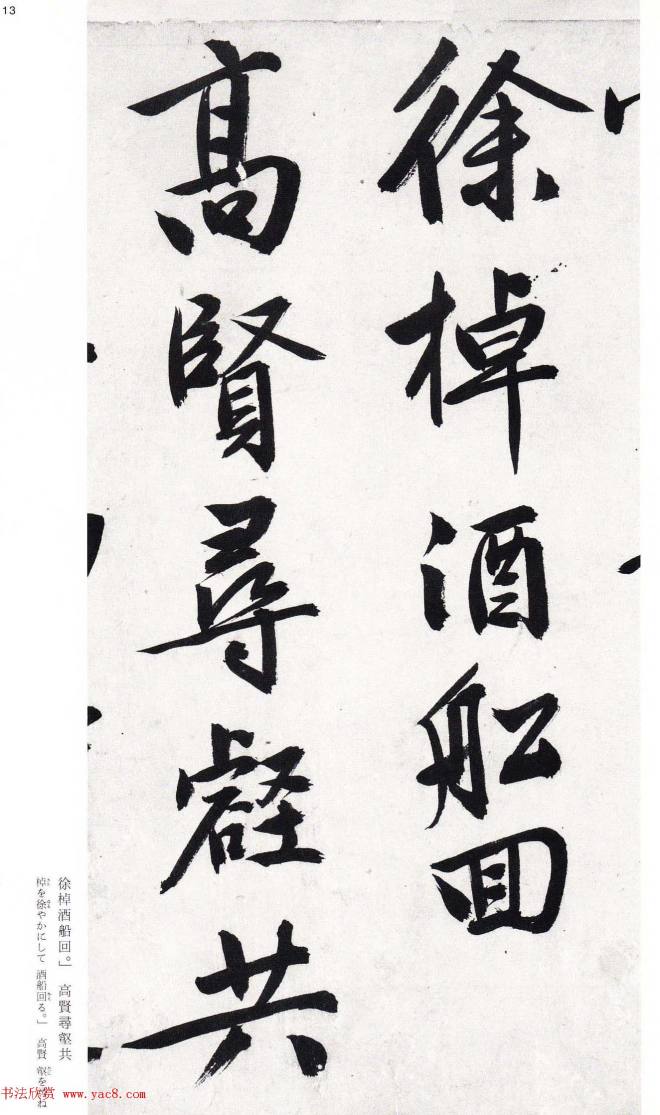 13
徐棹酒船回
高賢尋壑共
徐棹酒船回。」 高賢尋壑共
棹を徐やかにして 酒船回る。」 高賢 壑を
书法欣赏 www.yac8.com